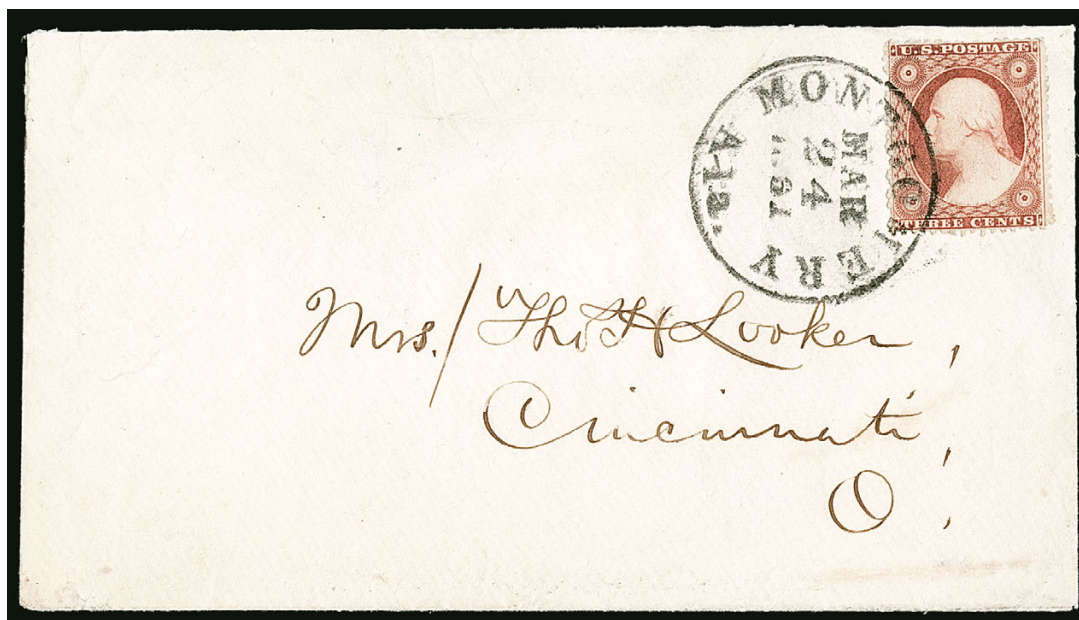 U.S. POSTAGE
THREE CENTS
MONTGOMERY
Ala.
MAR
24
1861
Mrs. / Thos H Looker,
Cincinnati,
O.